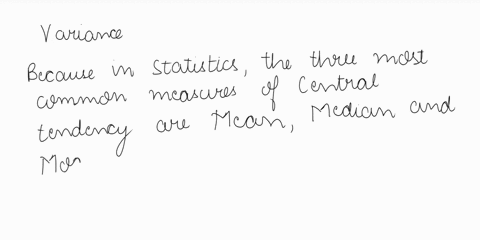 Variance
Because in statistics, the three most
common measures of Central
tendency are Mean, Median and
Mo